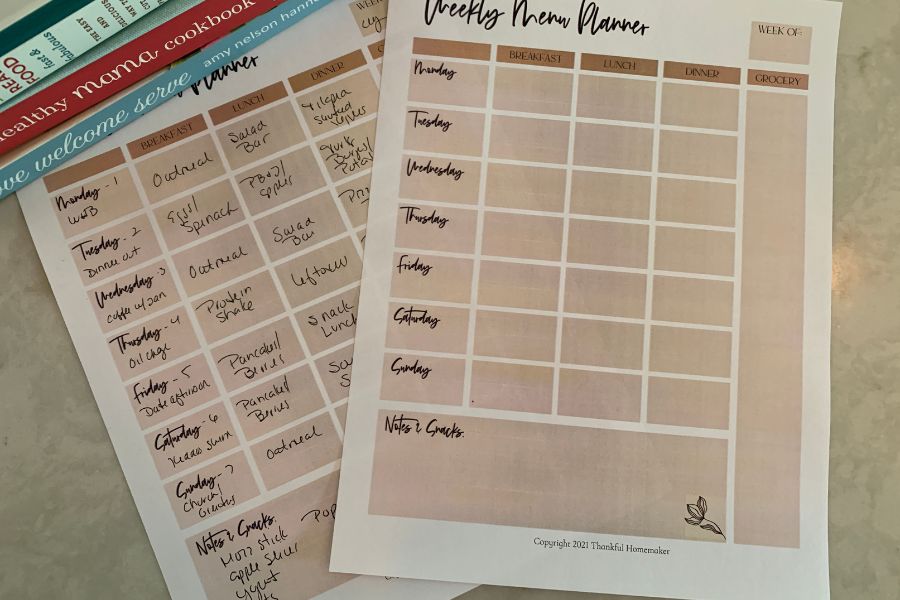 THE EASY
WAY TO
DELICIOUS
AND
fast &
fabulous
REAL
FOOD
healthy mama cookbook
love welcome serve amy nelson hann
Planner
WEEK
BREAKFAST
LUNCH
DINNER
Monday - 1
Oatmeal
Salad
Bar
Tilapia
Tuesday - 2
Dinner out
Eggs/
Spinach
PB&J/
apples
Pork
Wednesday - 3
coffee w/
Oatmeal
Salad
Bar
Thursday - 4
Oil chge
Protein
Shake
leftover
Friday - 5
Date afternoon
Pancakes/
Berries
Snack
Lunch
Saturday - 6
Pancakes/
Berries
Sunday - 7
Church/
Oatmeal
Notes & Snacks:
Pop
Mozz Stick
apple slices
Yogurt
Weekly Menu Planner
WEEK OF:
BREAKFAST
LUNCH
DINNER
GROCERY
Monday
Tuesday
Wednesday
Thursday
Friday
Saturday
Sunday
Notes & Snacks:
Copyright 2021 Thankful Homemaker